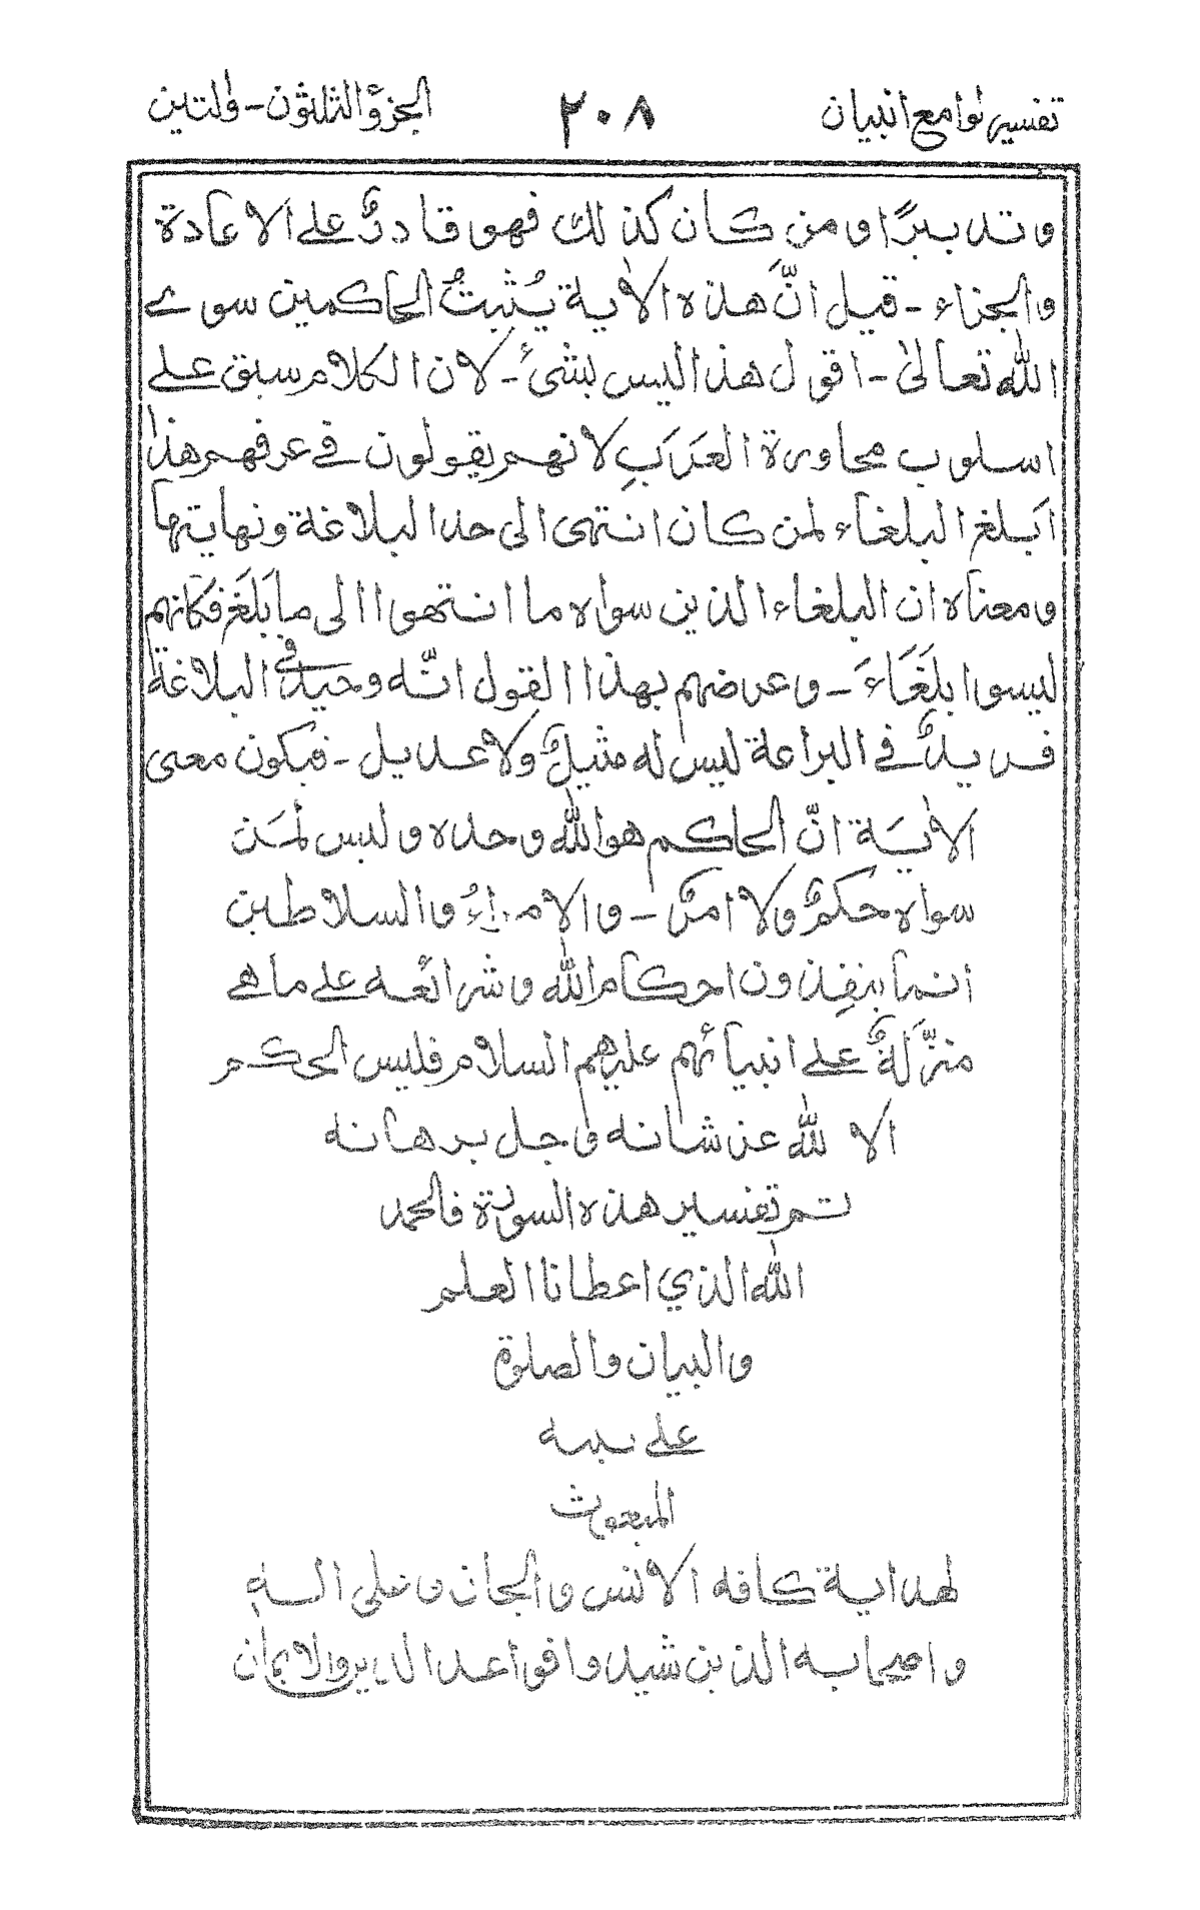 تفسير لوامع البيان ٢٠٨ الجزؤ الثلثون - والتين
وتدبيرًا ومن كان كذلك فهو قادرٌ على الاعادة
والجزاء - قيل انَّ هذه الاٰية يُثبتُ الحاكمين سوى
الله تعالىٰ - اقول هذا ليس بشئ - لان الكلام سبق على
اسلوب محاورة العَرَبِ لانهم يقولون في عرفهم هذا
ابَلغ البلغاء لمن كان انتهى الى حد البلاغة ونهايتها
ومعناه ان البلغاء الذين سواه ما انتهوا الى ما بَلَغَ فكانهم
ليسوا بلَغَاءَ - وعرضهم بهذا القول انّه وحيدٌ في البلاغة
فريدٌ في البراعة ليس له مثيلٌ ولا عديل - فيكون معنى
الاٰيَة انّ الحاكم هو الله وحده وليس لمَن
سواه حكمٌ ولا امرٌ - والامراءُ والسلاطين
انما ينفِذون احكام الله وشرائعه على ما هي
منزَّلةٌ على انبيائهم عليهم السلام فليس الحكم
الا لله عز شانه وجل برهانه
تم تفسير هذه السورة فالحمد
الله الذي اعطانا العلم
والبيان والصلوة
على نبيه
المبعوث
لهداية كافه الانس والجان وعلى اله
واصحابه الذين شيدوا قواعد الدين والايمان